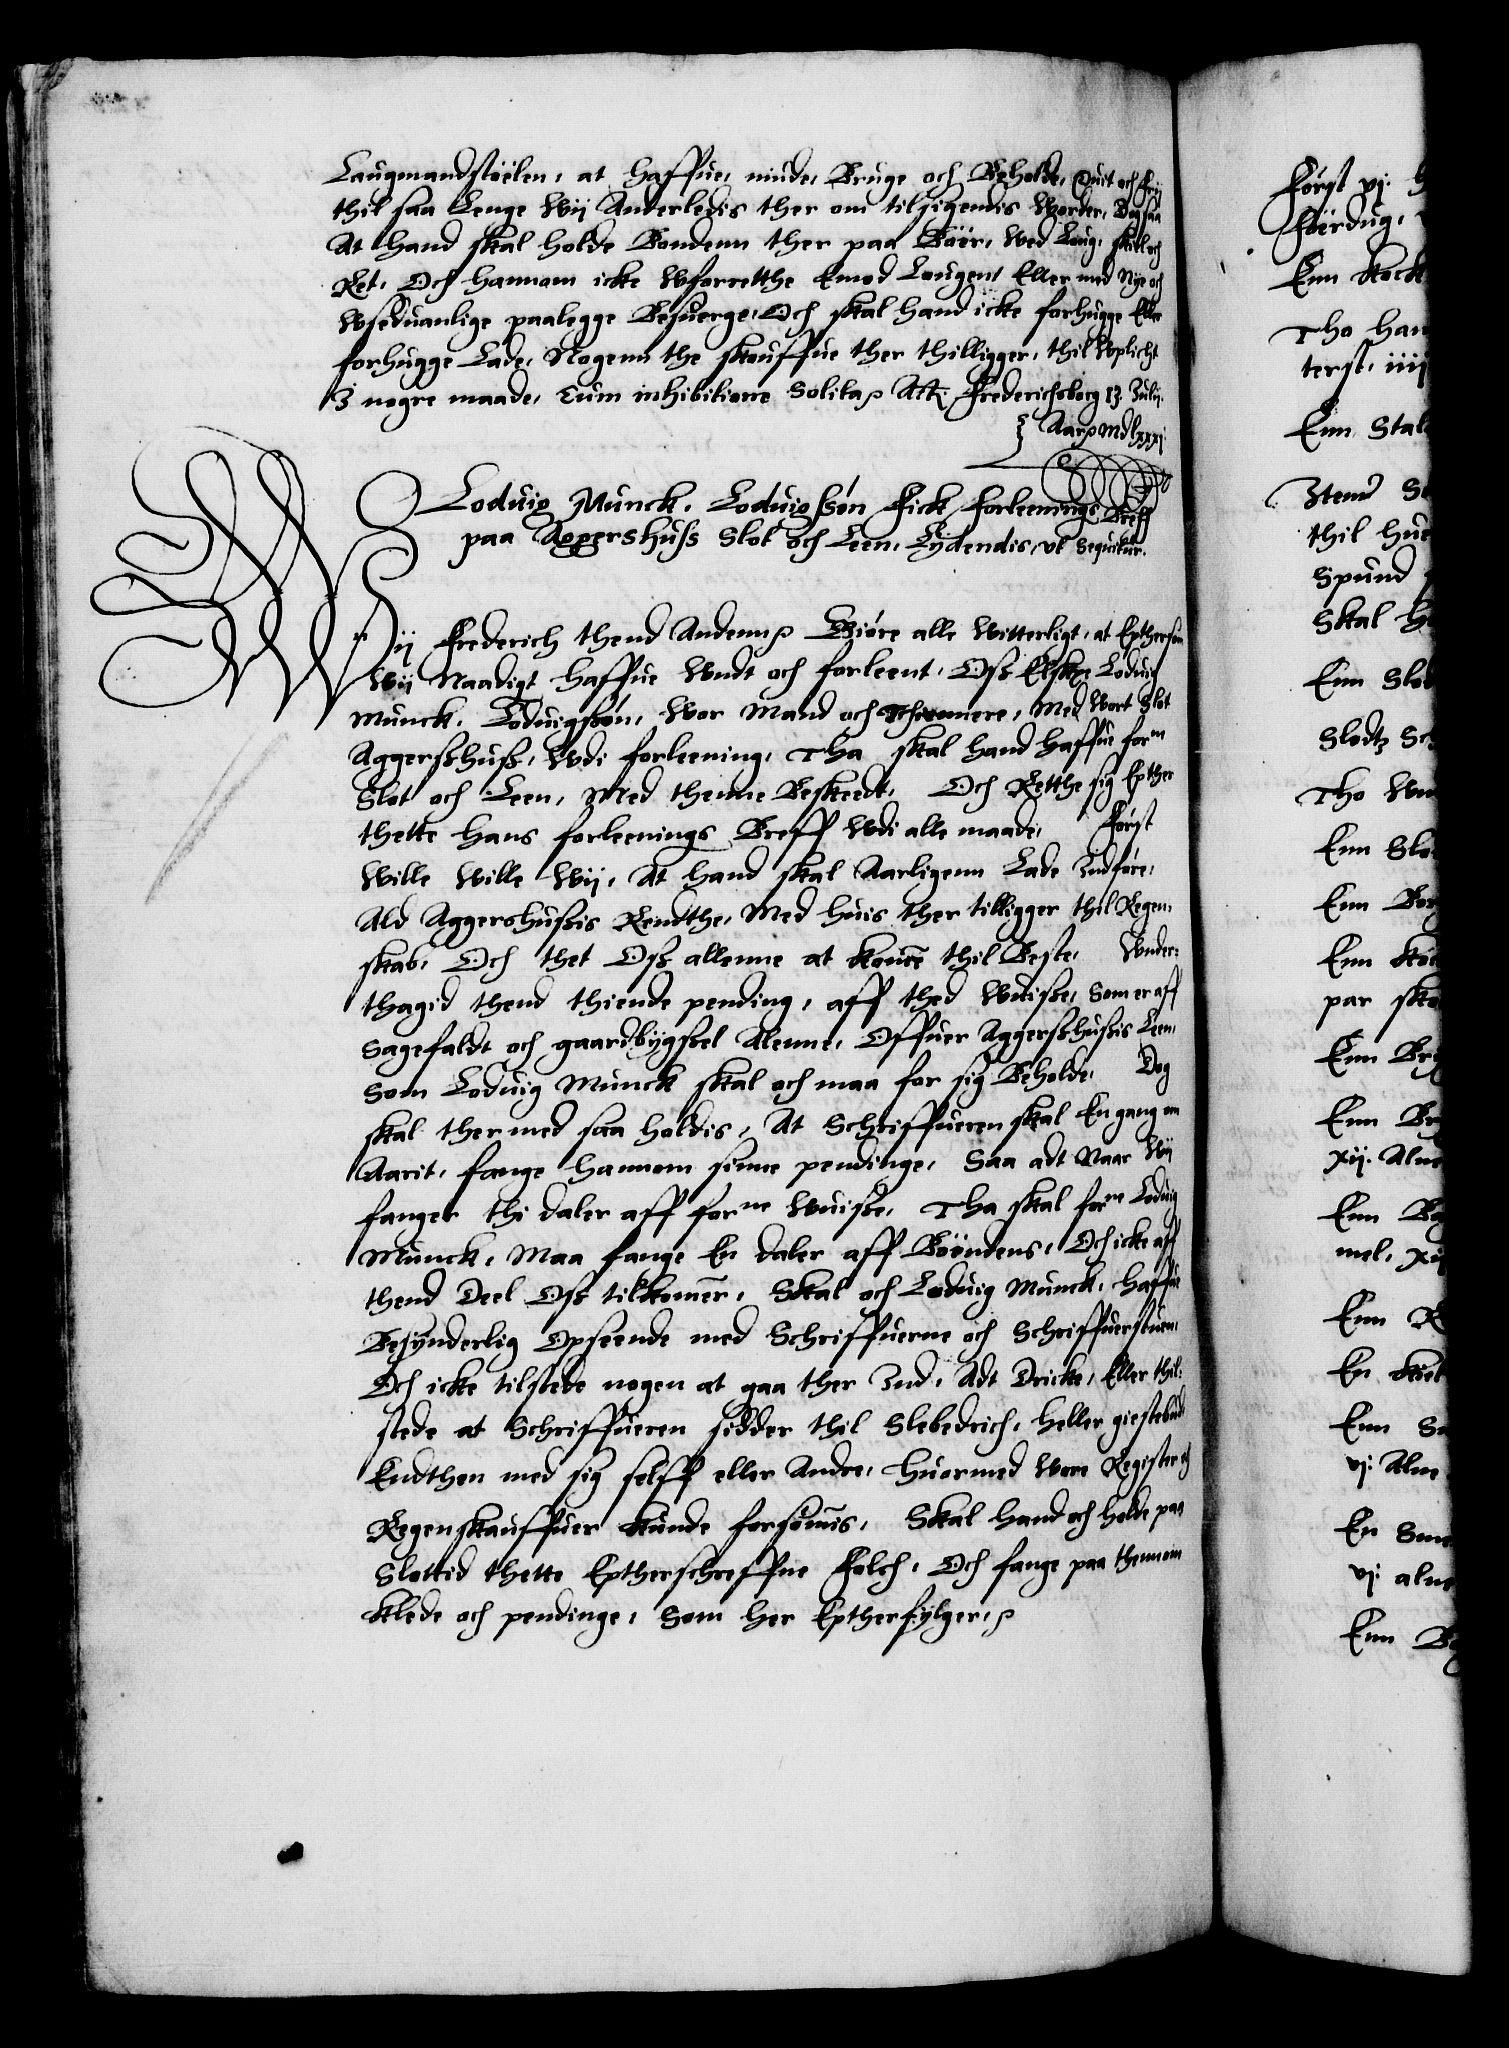 Laugmandstolen, at haffue, niude, Bruge och Beholde, Quit och frij
thil saa Lenge Wij Anderledis ther om tilsigendis Worder, Dog saa
At hand skal holde Bondenn ther paa Boer, Wed Laug, skiel och
Ret, Och hannom icke Wforretthe Emod Lougen, Eller med Nye och
Wseduanlige paalegge Besuerge, Och skal hand icke forhugge Eller
forhugge Lade, Nogenn the skouffue ther thilligger, thil Wplicht
I nogre maade, Cum inhibitione Solita Act. Frederichsborg 13 Julij
Aar MDlxxxj
Loduig Munck, Loduigssøn Fick Forleenings Breff
paa Aggershuss Slot och Leen, Lydendis, vt Sequitur.
Wij Frederich thend Andenn Giøre alle Witterligt, at Epthersom
Wij Naadigt haffue Wndt och forleent, Oss Elskel Loduig
Munck, Loduigssøn, Wor Mand och Thiennere, Med Wort Slot
Aggersshuss, Wdi forleening, Tha skal hand haffue forn
Slot och Leen, Med thenne Beskeedt, Och Retthe sig Epther
thette hans forleenings Breff Wdi alle maade, Først
Wille Wille Wij, At hand skal Aarligenn Lade Indføre,
Ald Aggershussis Rendthe, Med huis ther tilligger thil Regen-
skab, Och thet Oss allenne at komme thil Beste, Wnder-
thagid thend thiende pending, aff thed Wuisse, Som er aff
Sagefaldt och gaardbygssel Alenne, Offuer Aggersshussis Leen,
Som Loduig Munck skal och maa for sig Beholde, Dog
skal thermed saa holdis, At Schriffueren skal En gang om
Aarit, fange hannom sinne pendinge, Saa adt Naar Wij
fanger thi daler aff forne Wuisse, Tha skal forn Loduig
Munck, Maa fange En daler aff Bøøndens, Och icke aff
thend Deel Oss tilkommer, Skal och Loduig Munck, haffue
Besynderlig Opseende med Schriffuerne och Schriffuerstuen,
Och icke tilstede nogen at gaa ther Ind, Adt Dricke, Eller thil-
stede at Schriffueren sidder thil Slebedrich, heller giestebud
Endthen med sig selff eller Andre, huormed Wore Register och
Regenskauffuer kunde forsømmis, Skal hand och holde paa
Slottid thette Eptherschreffne Folch, Och fange paa thennom
Klede och pendinge, Som her Eptherfylger,
Først vj
Enn kock
Tho
terst, iiij
Enn Stal
Item
thil
Spund
Skal
Enn
Slodtz
Tho
Enn
Enn
Enn
par
Enn
Enn
xij. Alne
Enn
mel,
Enn
En
Enn
vj. Alne
En
vj. alne
Enn